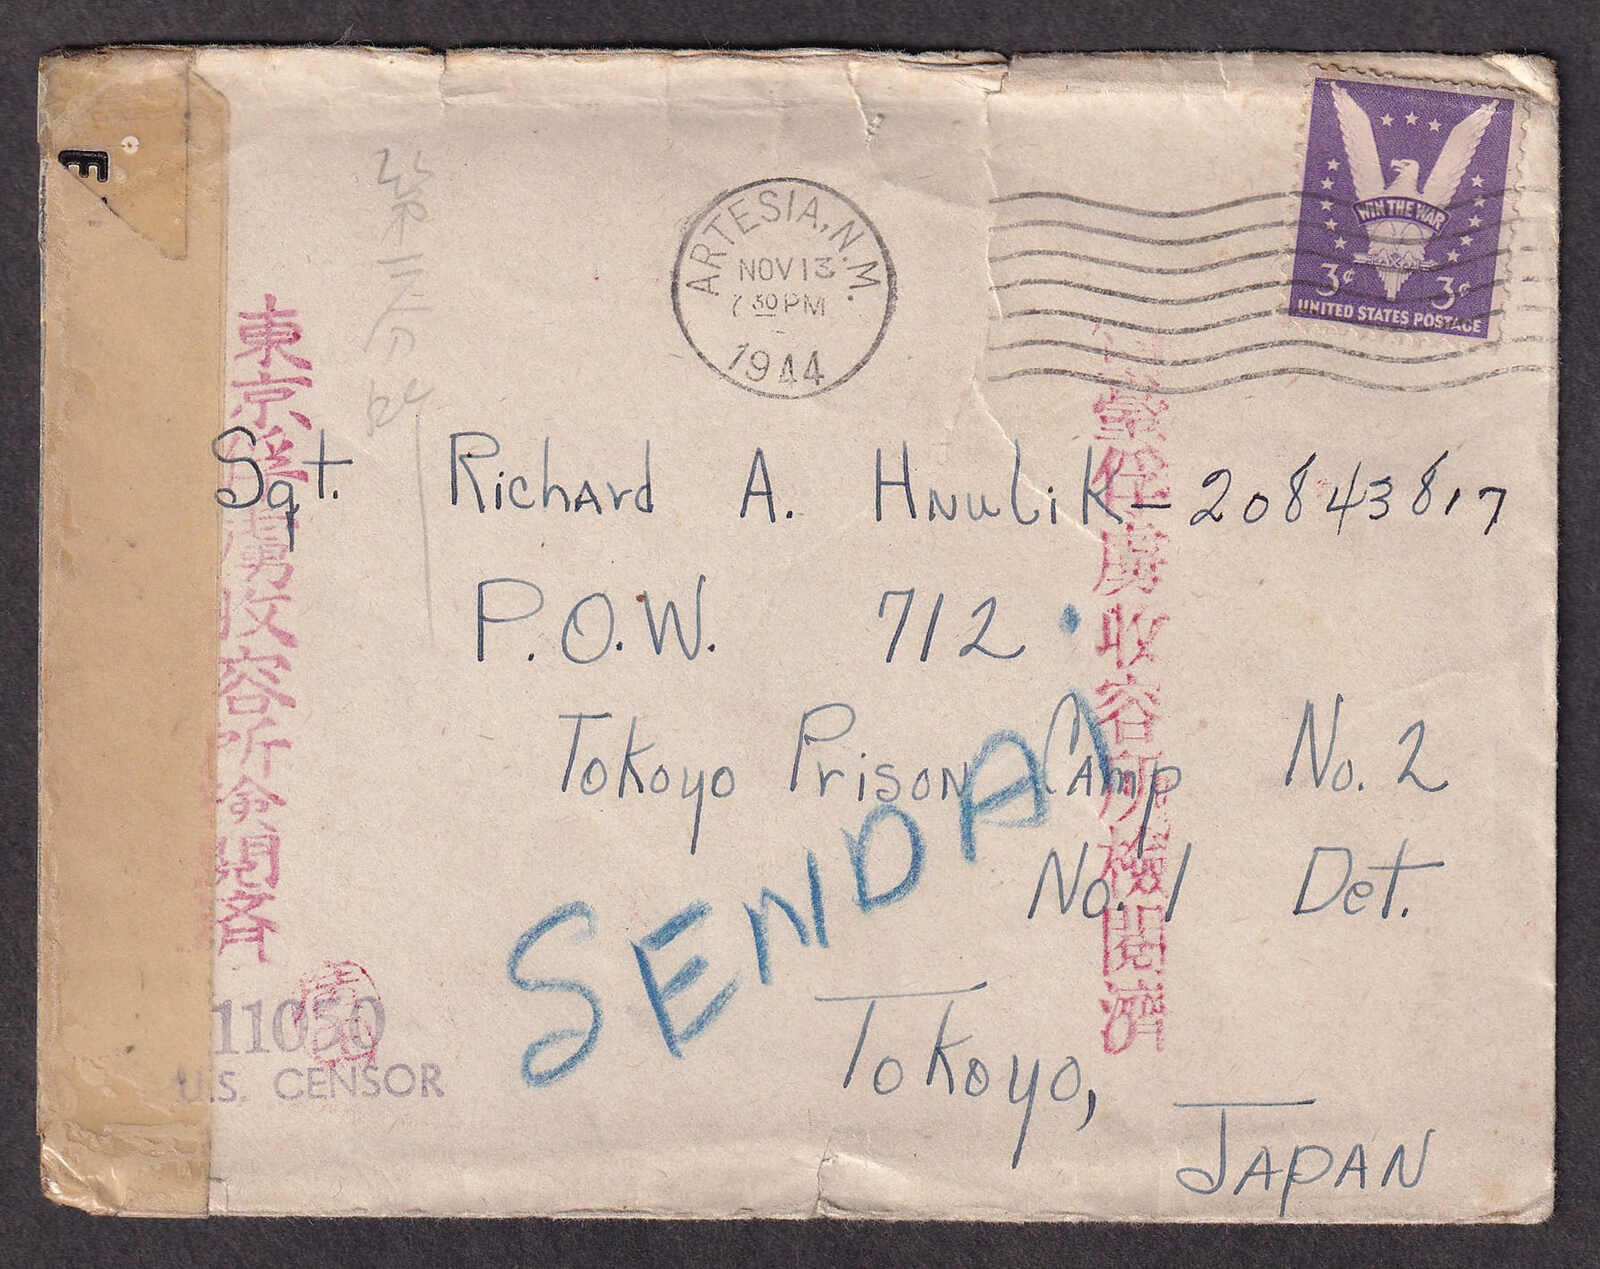 ARTESIA, N.M.
NOV 13
7 30 PM
1944
WIN THE WAR
3¢ 3¢
UNITED STATES POSTAGE
E
Sgt. Richard A. Hnulik - 20843817
P.O.W. 712
Tokoyo Prison Camp No. 2
No. 1 Det.
Tokoyo,
JAPAN
SENDAI
東京俘虜收容所檢閲済
俘虜收容所檢閲濟
11050
U.S. CENSOR